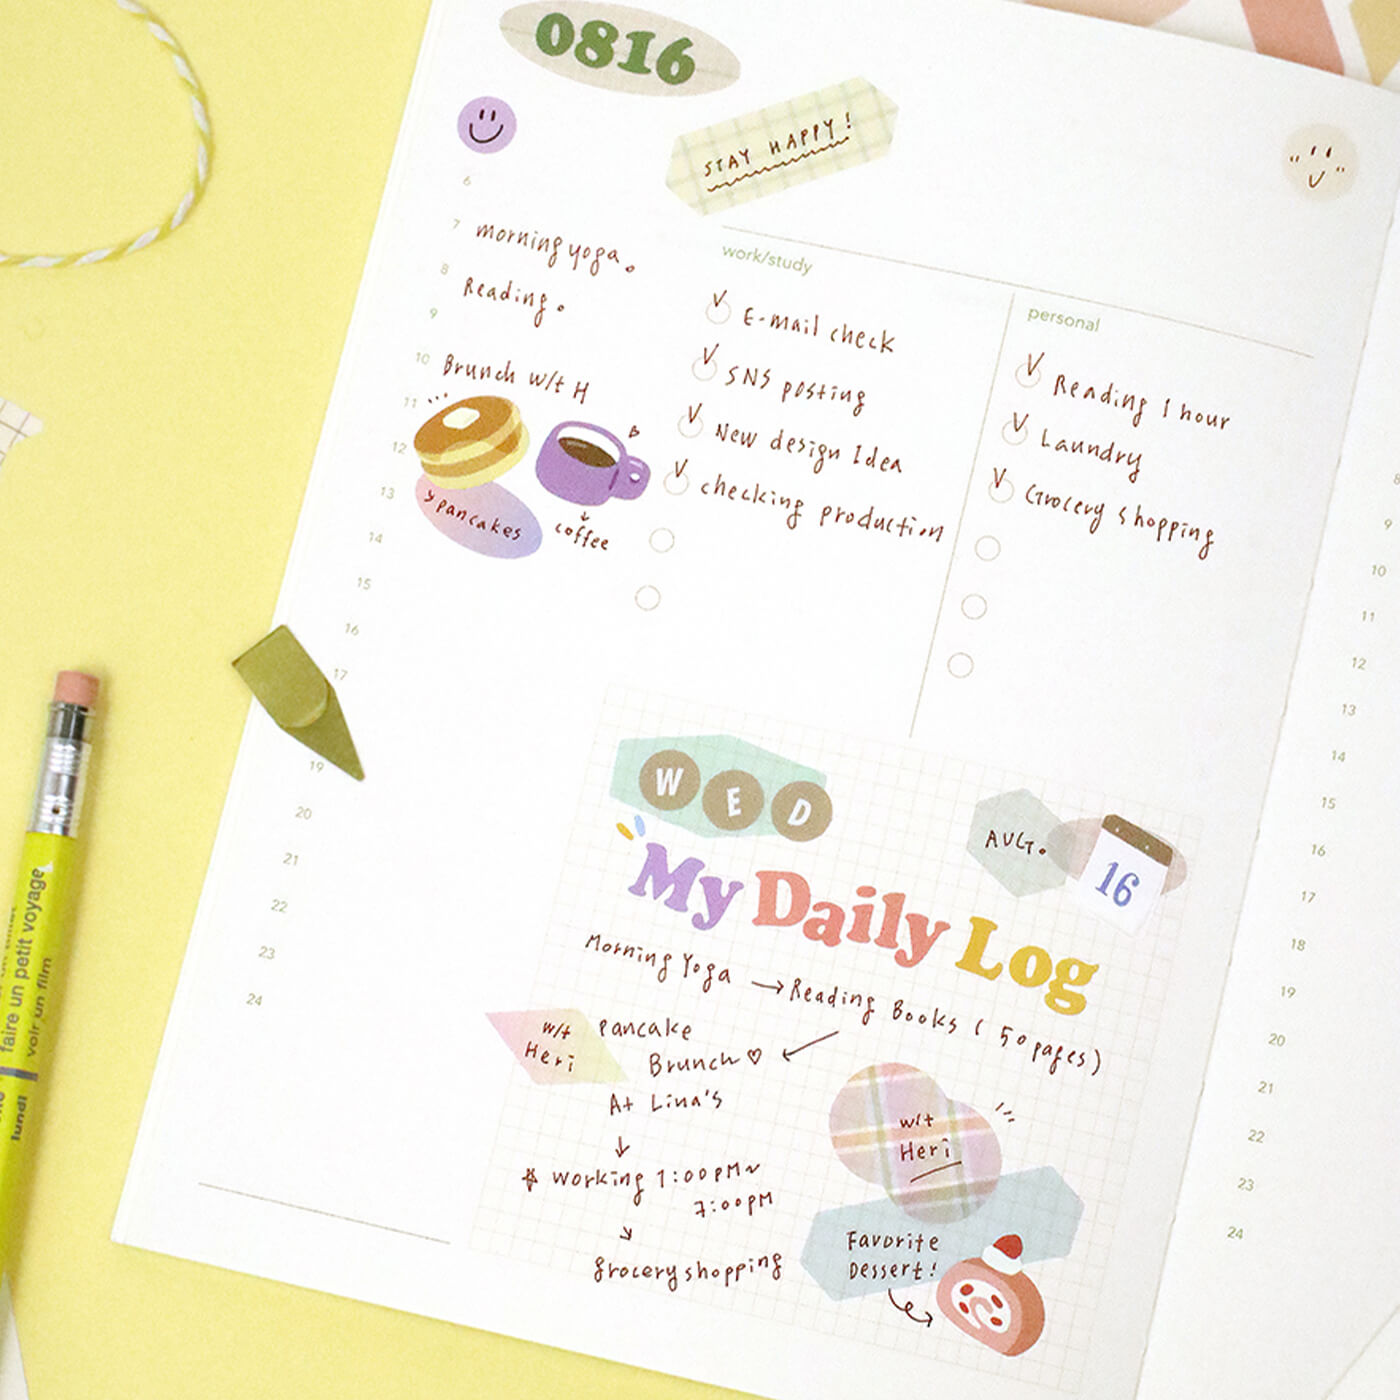 0816
STAY HAPPY!
6
7
morning yoga.
8
Reading.
9
10
Brunch w/t H
11
12
13
pancakes
coffee
14
15
16
17
19
20
21
22
23
24
work/study
E-mail check
SNS posting
New design Idea
checking production
personal
Reading 1 hour
Laundry
Grocery shopping
WED
AUG.
16
My Daily Log
Morning Yoga → Reading Books ( 50 pages)
w/t
Heri
pancake
Brunch ♡
At Lina's
↓
working 1:00PM~
7:00PM
grocery shopping
w/t
Heri
Favorite
Dessert!
8
9
10
11
12
13
14
15
16
17
18
19
20
21
22
23
24
faire un petit voyage
voir un film
lundi